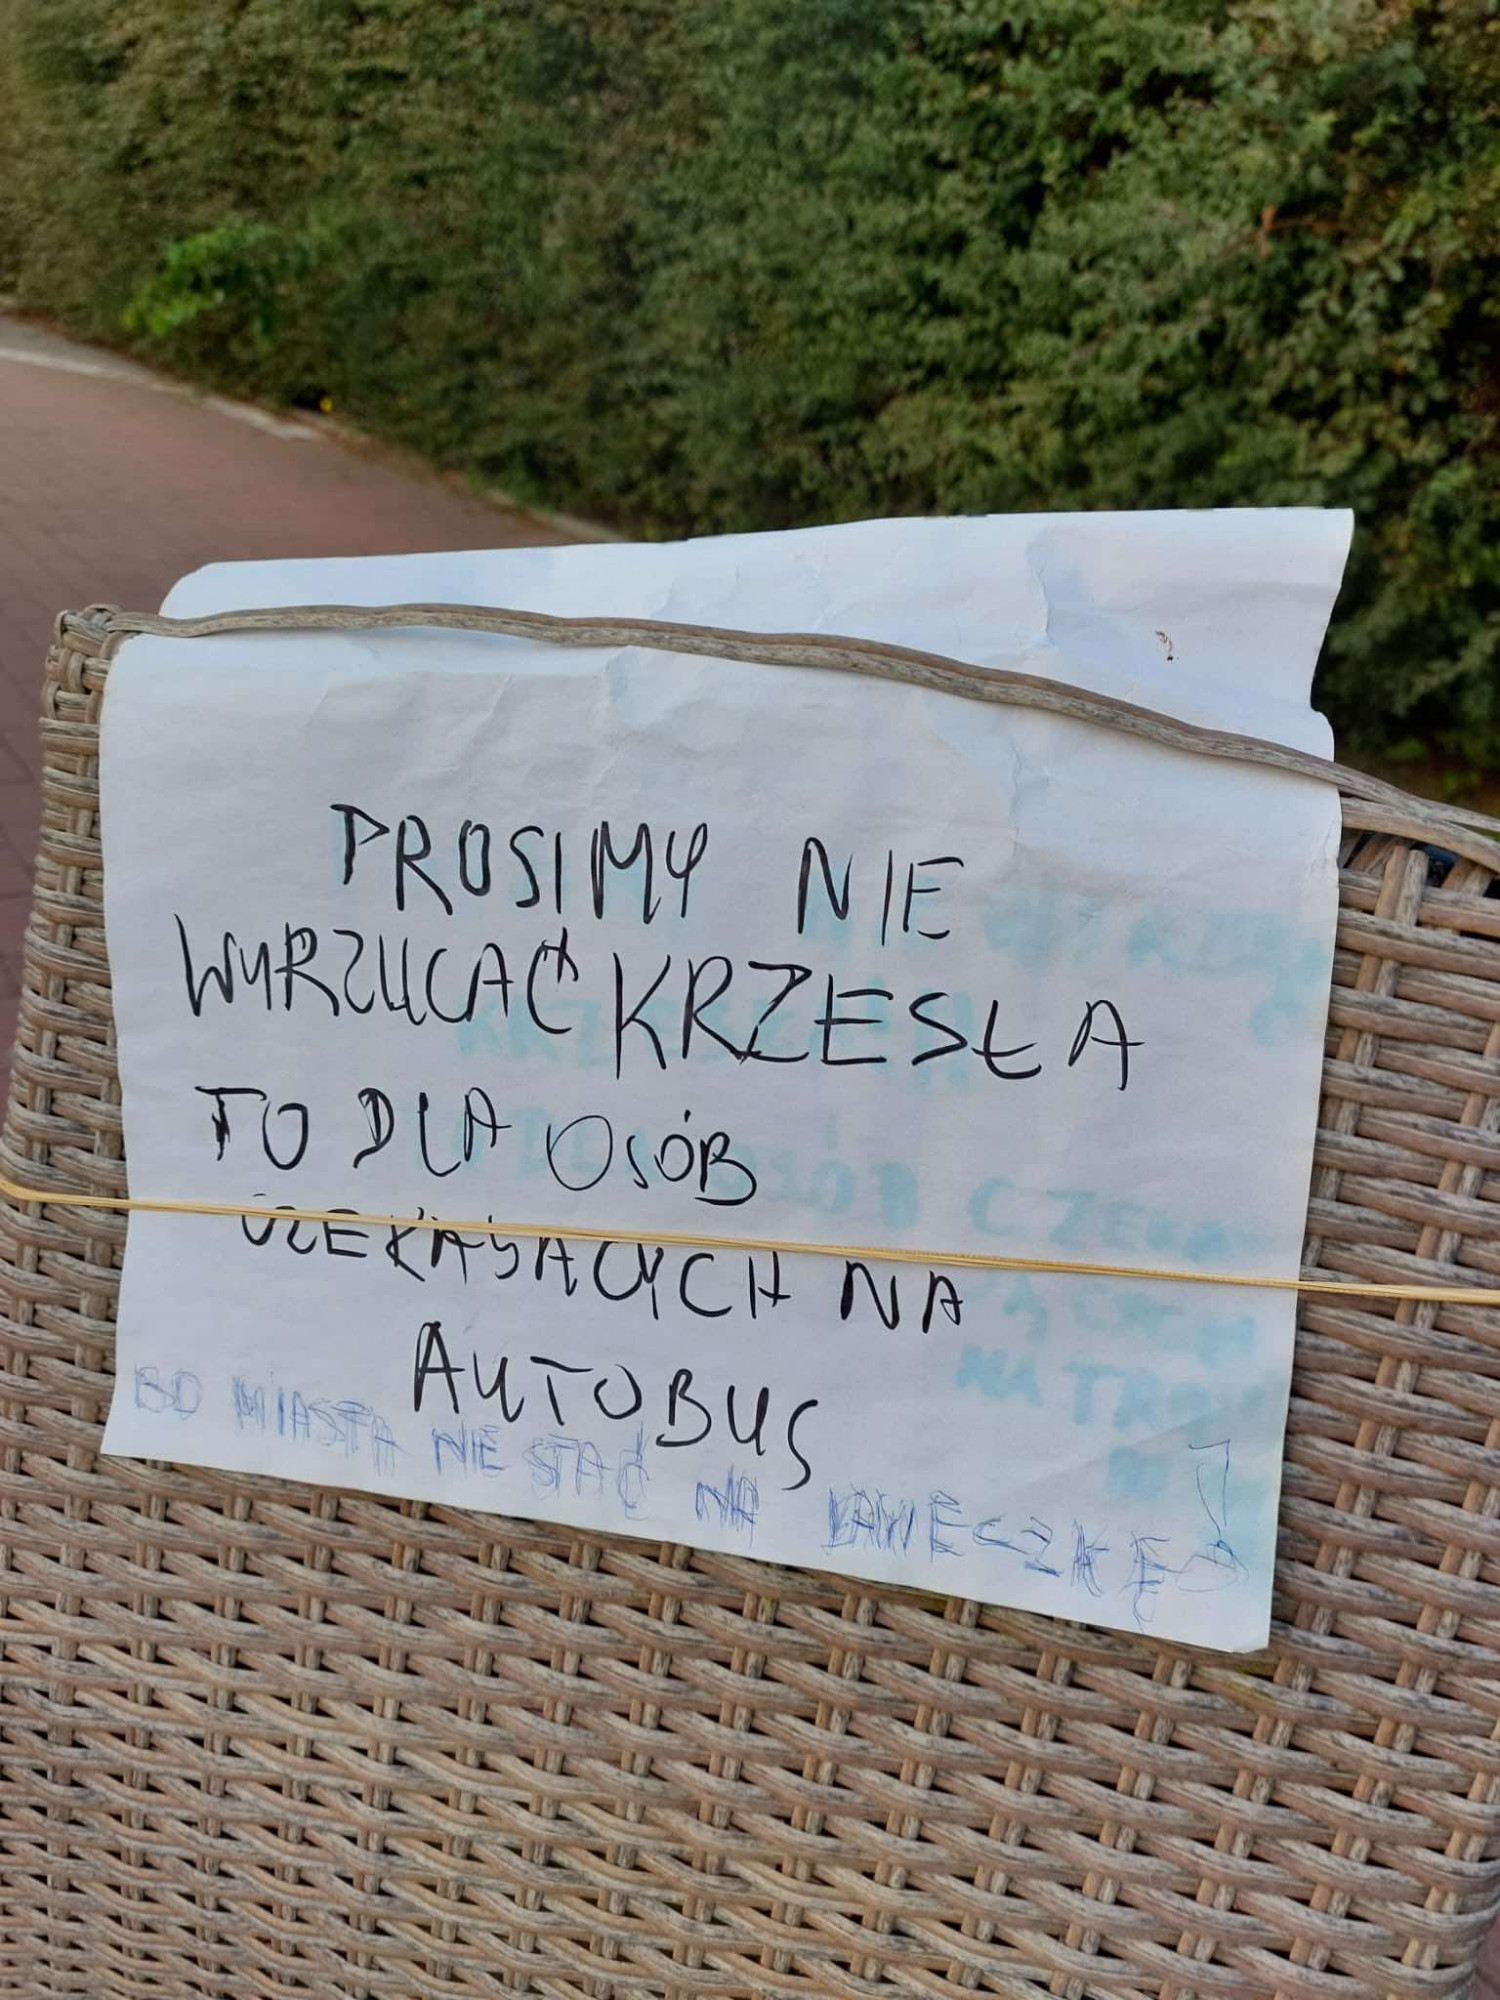 PROSIMY NIE
WYRZUCAĆ KRZESŁA
TO DLA OSÓB
CZEKAJACYCH NA
AUTOBUS
BO MIASTA NIE STAĆ NA ŁAWECZKĘ!